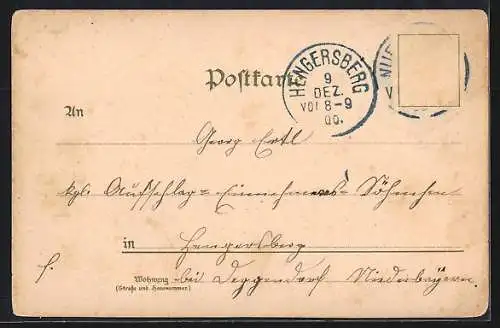 Postkarte
HENGERSBERG
9
DEZ.
VOR 8-9
00.
NUE
V
An
Georg Ertl
kgl. Aufschlag-Einnehmers-Söhnchen
in Hengersberg
Wohnung bei Deggendorf Niederbayern.
(Straße und Hausnummer.)